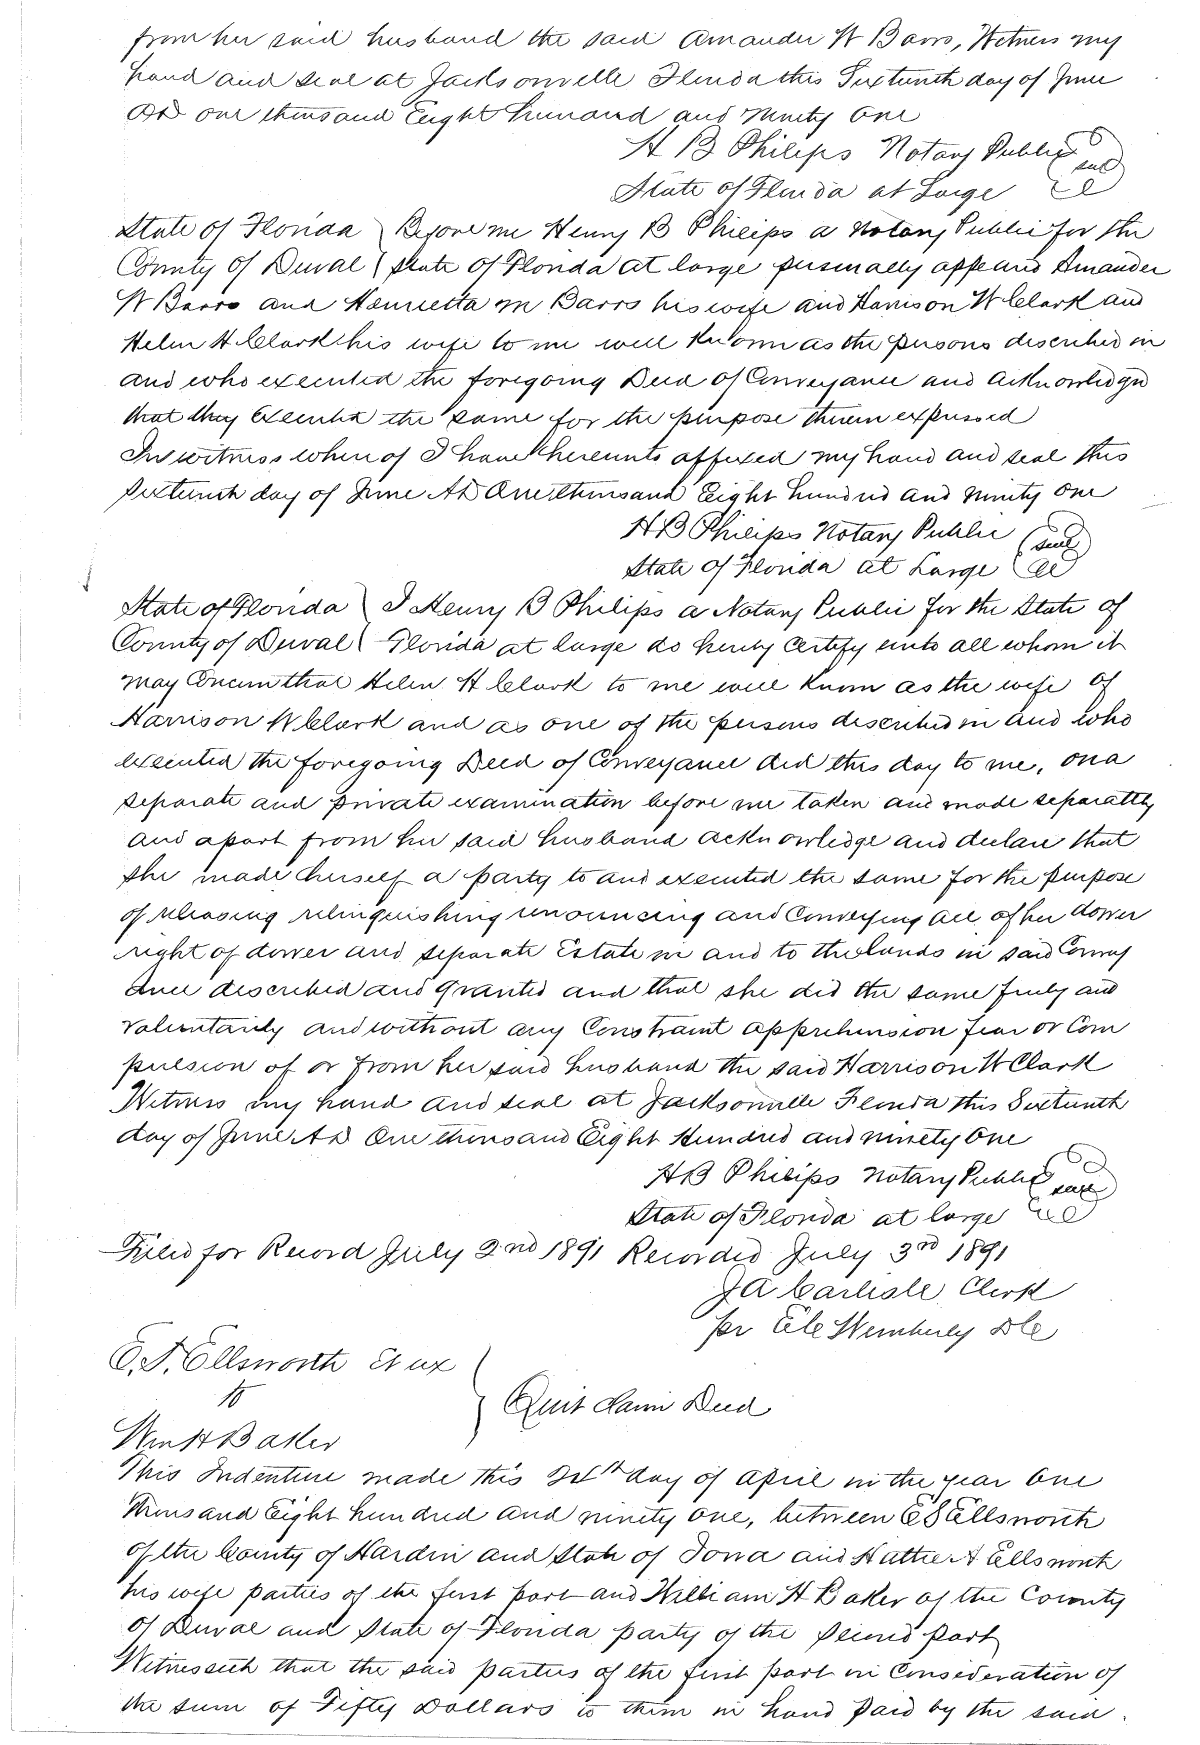 from her said husband the said Amander W Barrs, Witness my
hand and seal at Jacksonville Florida this Sixteenth day of June
AD one thousand Eight Hundred and ninety One
H B Philips Notary Public seal
State of Florida at Large
State of Florida } Before me Henry B Philips a Notary Public for the
County of Duval } State of Florida at large personally appeared Amander
W Barrs and Henrietta M Barrs his wife and Harrison W Clark and
Helen H Clark his wife to me well known as the persons described in
and who executed the foregoing Deed of Conveyance and acknowledged
that they executed the same for the purpose therein expressed
In witness whereof I have hereunto affixed my hand and seal this
Sixteenth day of June AD One thousand Eight hundred and ninety one
H B Philips Notary Public (seal)
State of Florida at Large
State of Florida } I Henry B Philips a Notary Public for the State of
County of Duval } Florida at large do hereby Certify unto all whom it
may Concern that Helen H Clark to me well known as the wife of
Harrison W Clark and as one of the persons described in and who
executed the foregoing Deed of Conveyance did this day to me, on a
separate and private examination before me taken and made separately
and apart from her said husband acknowledge and declare that
she made herself a party to and executed the same for the purpose
of releasing relinquishing renouncing and Conveying all of her dower
right of dower and separate Estate in and to the lands in said Convey
ance described and granted and that she did the same freely and
voluntarily and without any Constraint apprehension fear or Com
pulsion of or from her said husband the said Harrison W Clark
Witness my hand and seal at Jacksonville Florida this Sixteenth
day of June AD One thousand Eight Hundred and ninety One
H B Philips Notary Public seal
State of Florida at large
Filed for Record July 2nd 1891 Recorded July 3rd 1891
J A Carlisle Clerk
pr Wemberly DC
E. S. Ellsworth Et ux
to } Quit Claim Deed
Wm H Baker
This Indenture made this day of April in the year One
Thousand Eight hundred and ninety one, between E S Ellsworth
of the County of Hardin and State of Iowa and Hattie A Ellsworth
his wife parties of the first part and William H Baker of the County
of Duval and State of Florida party of the second part
Witnesseth that the said parties of the first part in Consideration of
the sum of Fifty Dollars to them in hand paid by the said